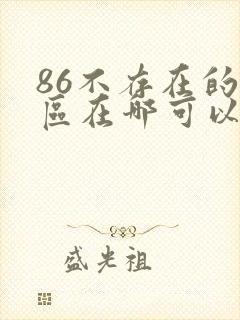 86不存在的
區在哪可以
盛光祖